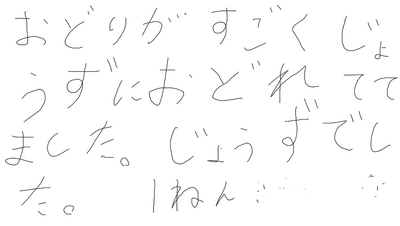 おどりが すごく じょ
うずにおどれてて
ました。じょうずでし
た。 1ねん